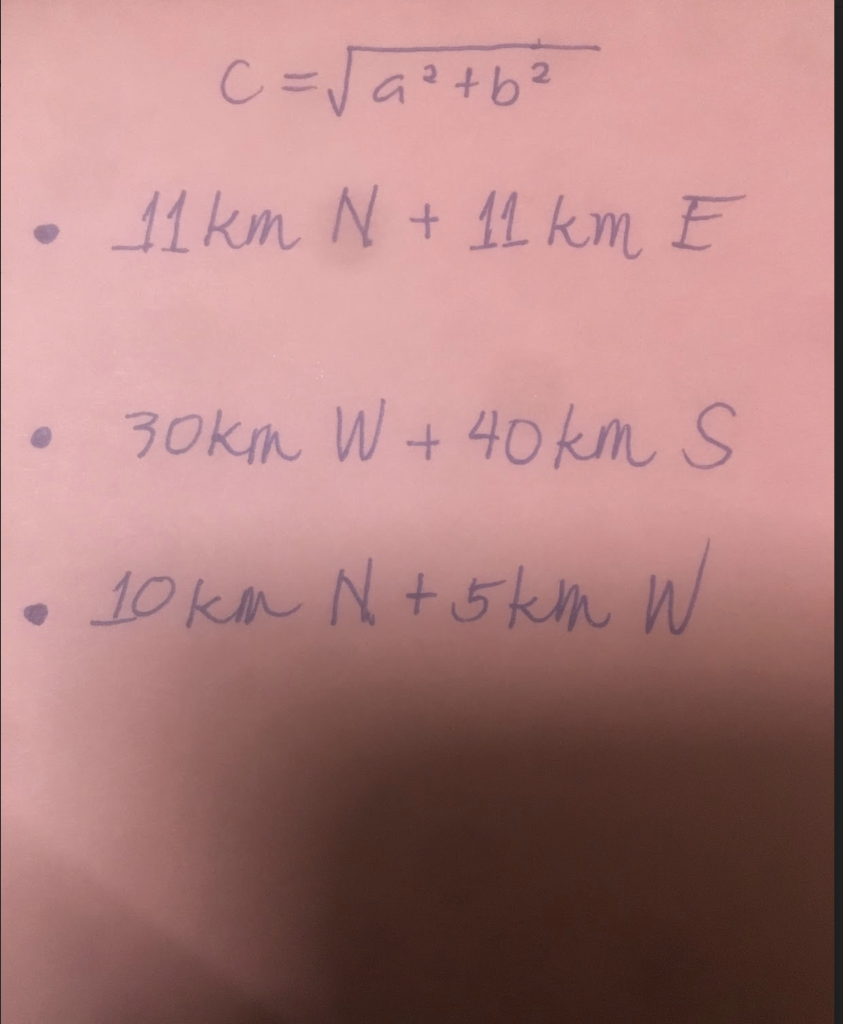 c = √a² + b²
• 11 km N + 11 km E
• 30 km W + 40 km S
• 10 km N + 5 km W